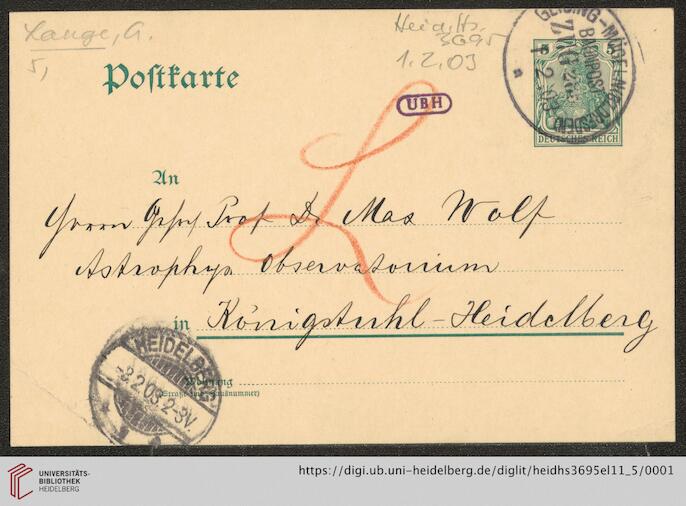 Lange, A.
5,
Heid. Hs.
3695
1.2.03
UBH
Postkarte
BAHNPOST
DEUTSCHES REICH
An
Herrn Prof Dr Max Wolf
Astrophys Observatorium
in Königstuhl-Heidelberg
HEIDELBERG
-3.2.03.2-3V.
Wohnung
(Straße und Hausnummer)
L
UNIVERSITÄTS-
BIBLIOTHEK
HEIDELBERG
https://digi.ub.uni-heidelberg.de/diglit/heidhs3695el11_5/0001